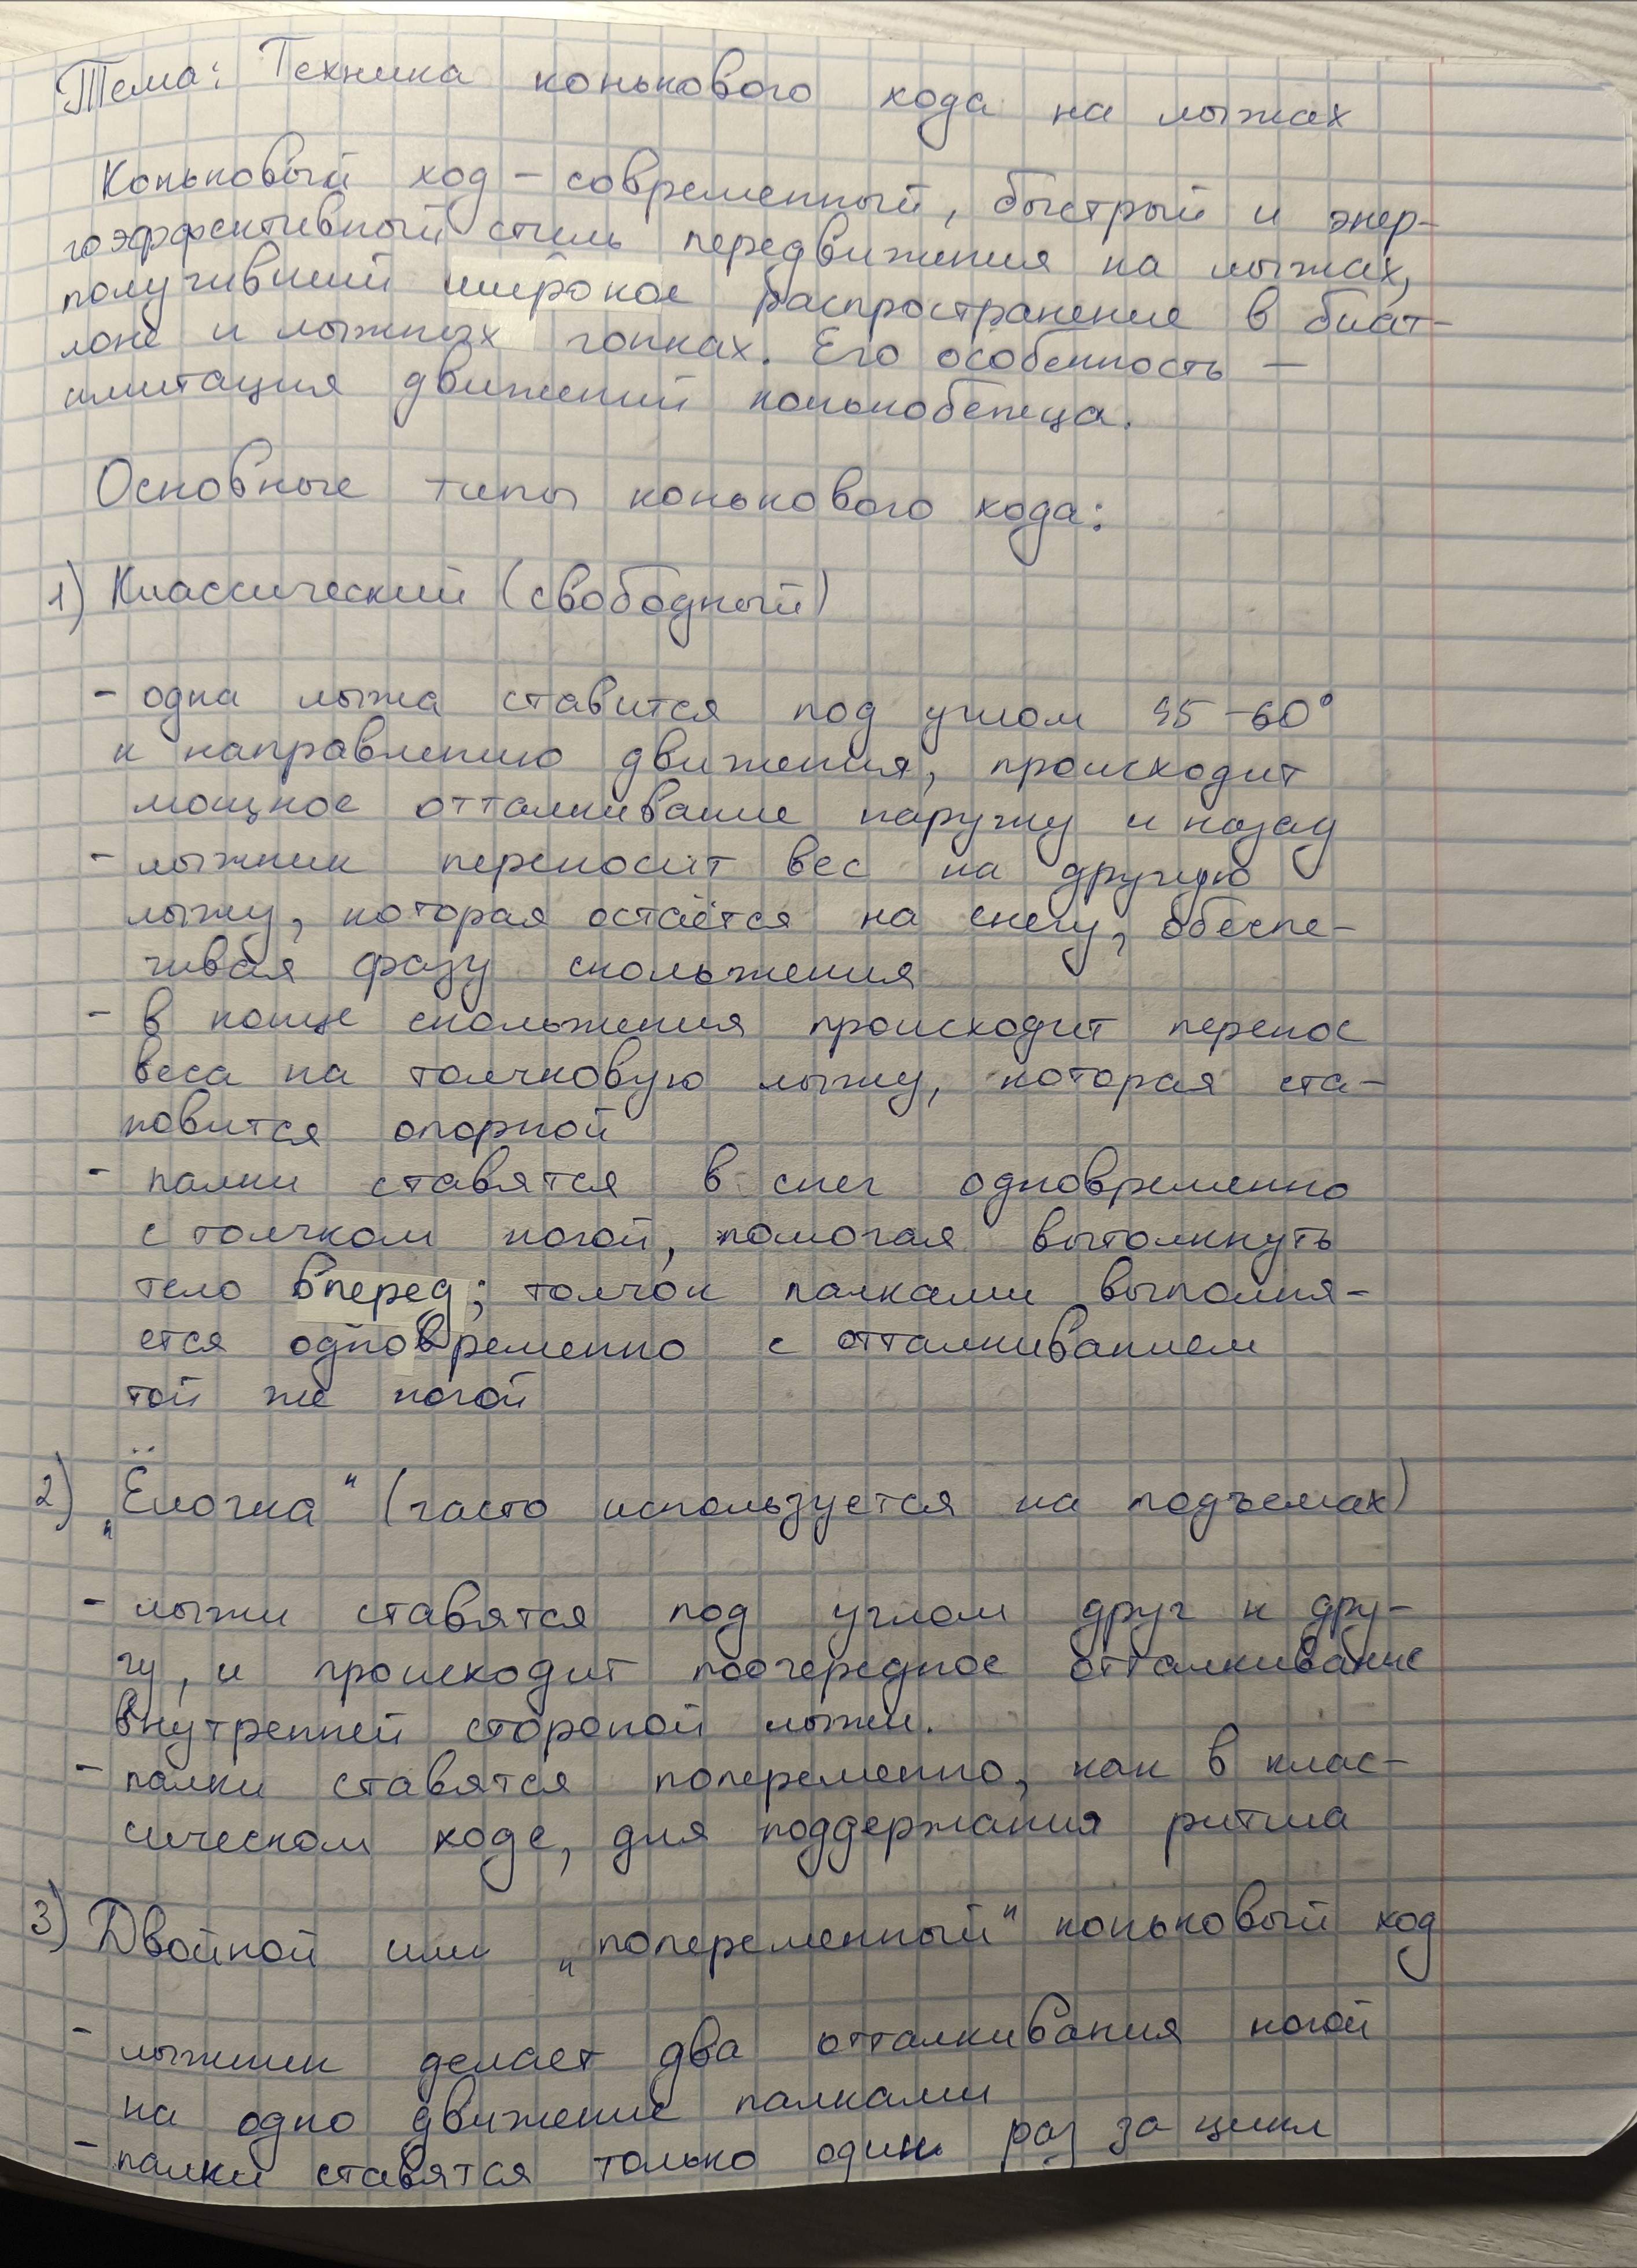 Тема: Техника конькового хода на лыжах
Коньковый ход – современный, быстрый и энер-
гоэффективный стиль передвижения на лыжах,
получивший широкое распространение в биат-
лоне и лыжных гонках. Его особенность –
имитация движений конькобежца.
Основные типы конькового хода:
1) Классический (свободный)
- одна лыжа ставится под углом 45-60°
к направлению движения, происходит
мощное отталкивание наружу и назад
- лыжник переносит вес на другую
лыжу, которая остаётся на снегу, обеспе-
чивая фазу скольжения
- в конце скольжения происходит перенос
веса на толчковую лыжу, которая ста-
новится опорной
- палки ставятся в снег одновременно
с толчком ногой, помогая вытолкнуть
тело вперед; толчок палками выполня-
ется одновременно с отталкиванием
той же ногой
2) „Ёлочка" (часто используется на подъемах)
- лыжи ставятся под углом друг к дру-
гу, и происходит поочередное отталкивание
внутренней стороной лыжи.
- палки ставятся попеременно, как в клас-
сическом ходе, для поддержания ритма
3) Двойной или „попеременный" коньковый ход
- лыжник делает два отталкивания ногой
на одно движение палками
- палки ставятся только один раз за цикл